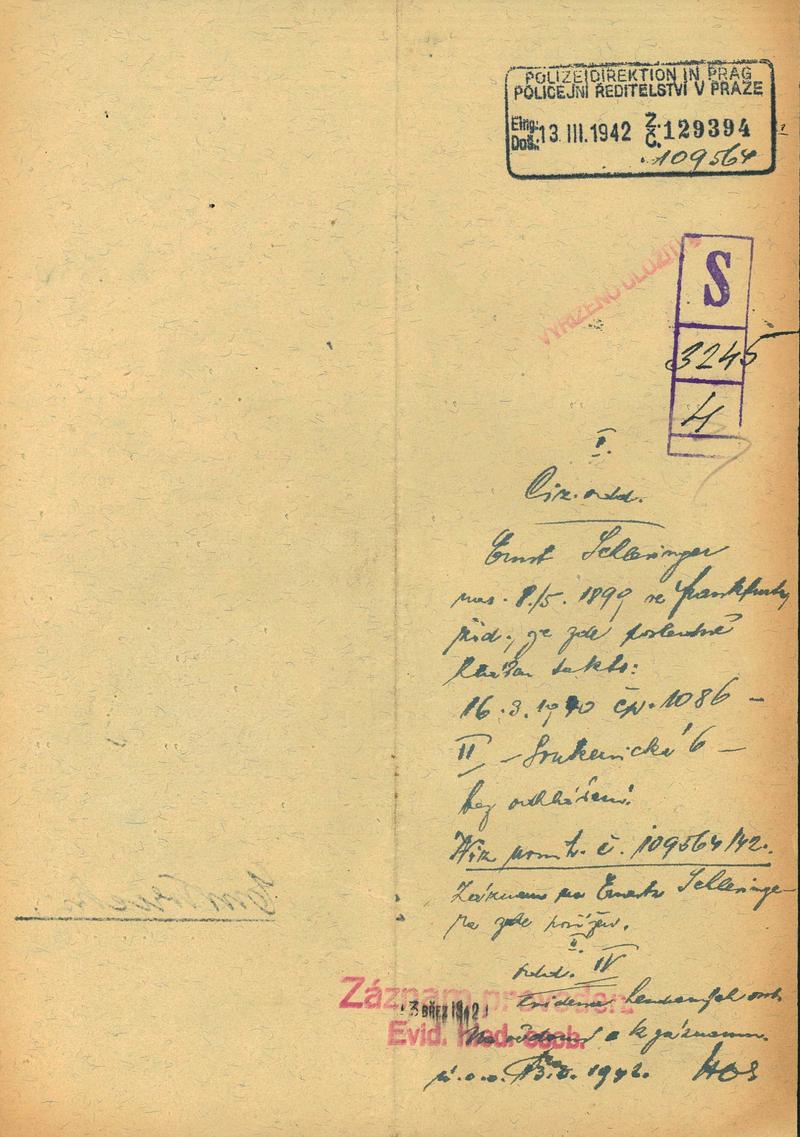 POLIZEIDIREKTION IN PRAG
POLICEJNÍ ŘEDITELSTVÍ V PRAZE
Eing.: Doš.: 13. III. 1942 Z. Č. 129394
109564
VYŘÍZENO ULOŽITI
S
3245
4
I.
Ciz. odd.
Ernst Schlesinger
nar. 8./5. 1899 ve Frankfurtu
žid., je zde posledně
hlášen takto:
16. 3. 1940 čp. 1086 –
II – Soukenická 6 –
bez odhlášení.
Viz č. 109564/42.
Záznam na Ernsta Schlesingera
zde pořízen.
II.
odd. IV
evidence hledaných osob
Na vědomí a k záznamu.
Záznam proveden:
3 BŘEZ 1942
Evid. hled. osob.
1942.